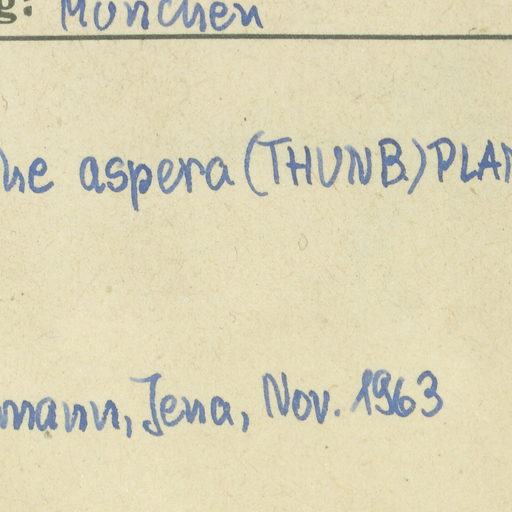 g: München
he aspera (THUNB.) PLAN
mann, Jena, Nov. 1963